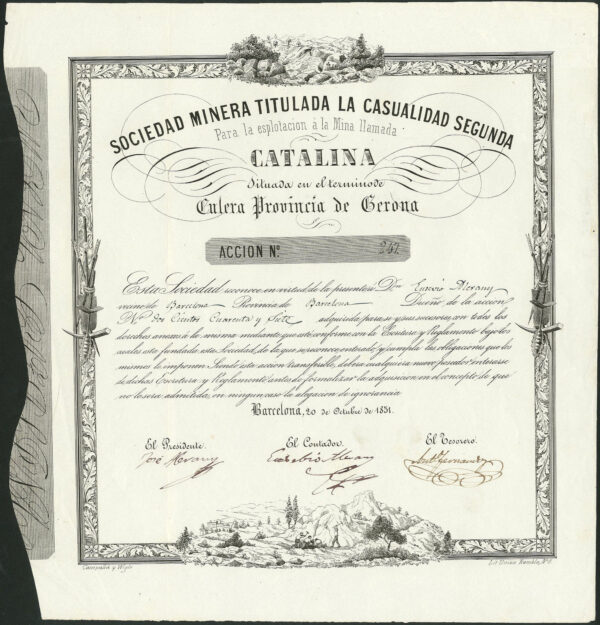 SOCIEDAD MINERA TITULADA LA CASUALIDAD SEGUNDA
Para la esplotacion á la Mina llamada
CATALINA
Situada en el termino de
Culera Provincia de Gerona
ACCION Nº 247
Esta Sociedad reconoce en virtud de la presente á Dn. Eusevio Merany
vecino de Barcelona Provincia de Barcelona Dueño de la accion
Nº dos Cientos Cuarenta y Siete adquirida para si y sus sucesores, con todos los
derechos anexos á la misma mediante que esté conforme con la Escritura y Reglamento bajo los
cuales está fundada esta Sociedad, de la que se reconoce enterado, y cumpla las obligaciones que los
mismos le imponen. Siendo esta accion transferible, deberá cualquiera nuevo poseedor enterarse
de dichas Escritura y Reglamento antes de formalizar la adquisicion en el concepto de que
no le será admitida, en ningun caso la alegacion de ignorancia
Barcelona, 20 de Octubre de 1851.
El Presidente. El Contador. El Tesorero.
José Merany Eusebio Merany Antº Fernandez
Campañá y Wiple Lit. Union Rambla, Nº